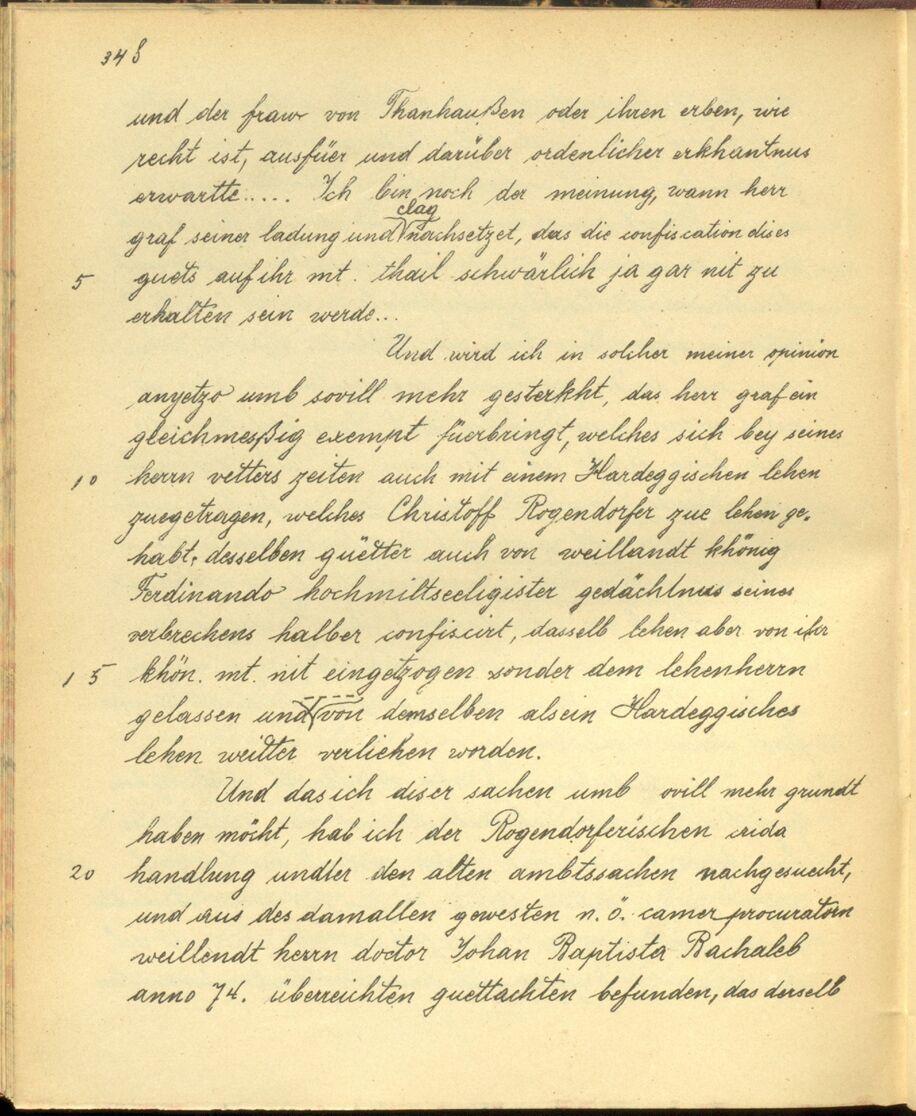 348
und der fraw von Thanhaußen oder ihren erben, wie
recht ist, ausfüer und darüber ordenlicher erkhantnus
erwartte..... Ich bin noch der meinung, wann herr
clag
graf seiner ladung und nachsetzet, das die confiscation dises
5 guets auf ihr mt. thail schwärlich ja gar nit zu
erhalten sein werde...
Und wird ich in solcher meiner opinion
anyetzo umb sovill mehr gesterkht, das herr graf ein
gleichmeßig exempt füerbringt, welches sich bey seines
10 herrn vetters zeiten auch mit einem Hardeggischen lehen
zuegetragen, welches Christoff Rogendorfer zue lehen ge-
habt, desselben güetter auch von weillandt khönig
Ferdinando hochmiltseeligister gedächtnus seines
verbrechens halber confiscirt, dasselb lehen aber von ihr
15 khön. mt. nit eingetzogen sonder dem lehenherrn
gelassen und von demselben als ein Hardeggisches
lehen weitter verliehen worden.
Und das ich diser sachen umb ovill mehr grundt
haben möcht, hab ich der Rogendorferischen crida
20 handlung undter den alten ambtssachen nachgesuecht,
und aus des damallen gewesten n. ö. camerprocuratorn
weillendt herrn doctor Johan Baptista Bachaleb
anno 74. überreichten guettachten befunden, das derselb